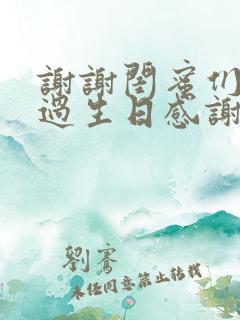 謝謝閨蜜们
過生日感謝
劉騫
未經同意禁止轉載